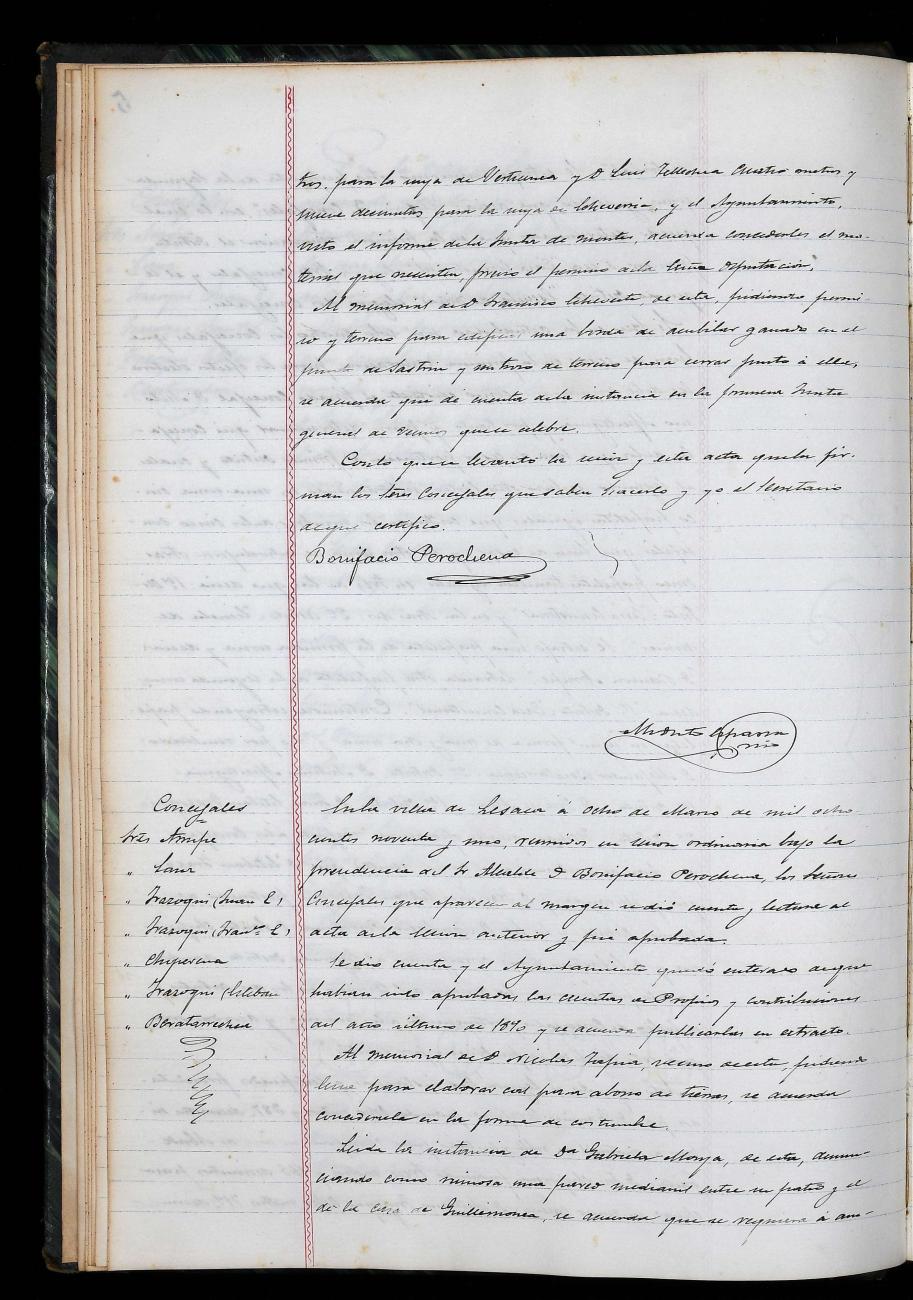 tros. para la suya de Vertranea y D. Luis Tellechea cuatro metros y
nueve decimetros para la suya de Echeverria, y el Ayuntamiento,
visto el informe de la Junta de montes, acuerda concederles el ma-
terial que necesiten, previo el permiso de la Excma Diputacion.
Al memorial de D Francisco Echeveste de esta, pidiendo permi-
so y terreno para edificar una borda de acubilar ganado en el
punto de Sastrin y un trozo de terreno para cerrar junto á ella,
se acuerda que dé cuenta de la instancia en la primera Junta
general de vecinos que se celebre.
Con lo que se levantó la sesion y esta acta que la fir-
man los Sres Concejales que saben hacerlo y yo el Secretario
de que certifico.
Bonifacio Perochena
Modesto Aparra
srio
Concejales
Sres Arripe
" Sanz
" Irazoqui (Juan E)
" Irazoqui (Franco E)
" Chiperena
" Irazoqui (Esteban
" Beratarrechea
En la villa de Lesaca á ocho de Marzo de mil ocho
cientos noventa y uno, reunidos en sesion ordinaria bajo la
presidencia del Sr Alcalde D Bonifacio Perochena, los Señores
Concejales que aparecen al margen se dió cuenta y lectura al
acta de la sesion anterior y fué aprobada.
Se dio cuenta y el Ayuntamiento quedó enterado de que
habian sido aprobadas las cuentas de Propios y contribuciones
del año último de 1890 y se acuerda publicarlas en extracto.
Al memorial de D Nicolas Tapia, vecino de esta, pidiendo
leña para elaborar cal para abono de tierras, se acuerda
concedersela en la forma de costumbre.
Leida la instancia de Da Gabriela Monza, de esta, denun-
ciando como ruinosa una pared medianil entre su patio y el
de la casa de Guillermonea, se acuerda que se requiera á am-